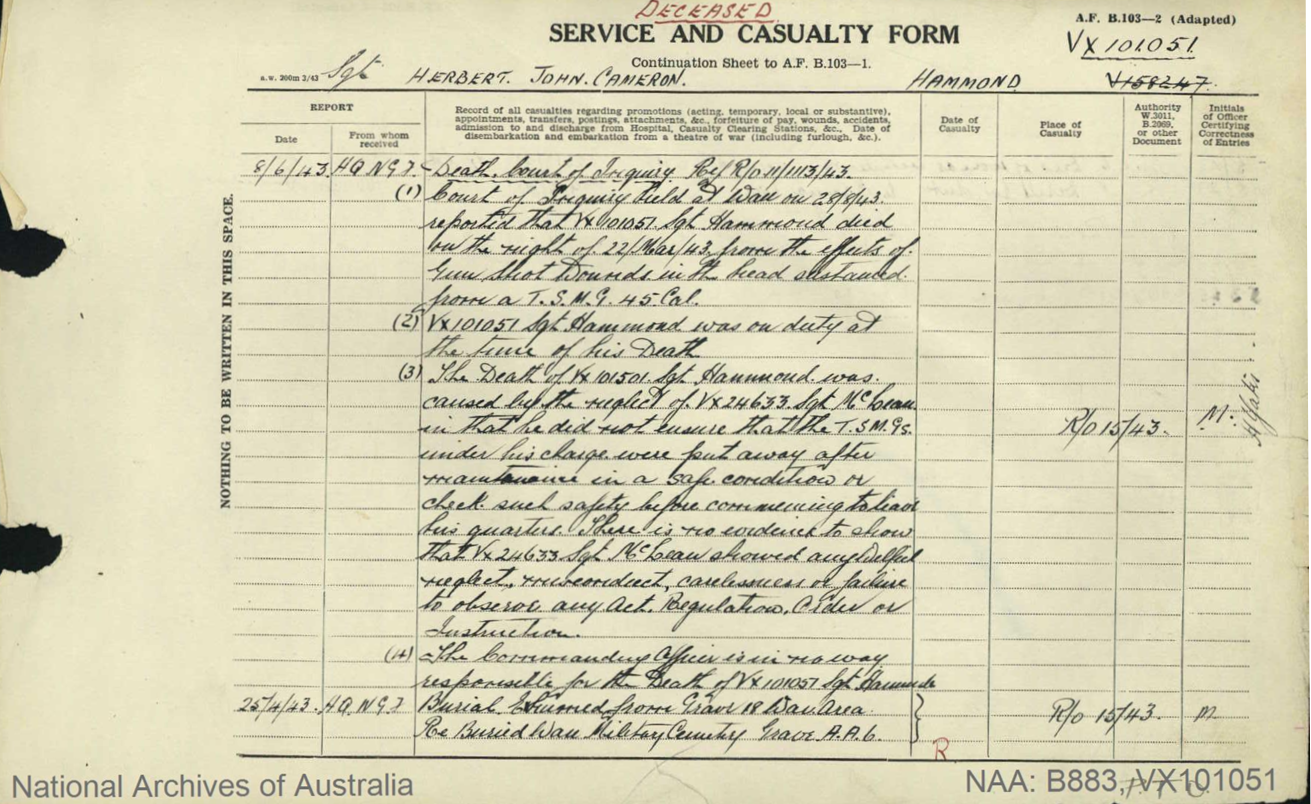 DECEASED
A.F. B.103—2 (Adapted)
SERVICE AND CASUALTY FORM
VX101051
Continuation Sheet to A.F. B.103—1.
a.w. 200m 3/43 Sgt HERBERT. JOHN. CAMERON. HAMMOND V158247.
REPORT
Date
From whom received
Record of all casualties regarding promotions (acting, temporary, local or substantive),
appointments, transfers, postings, attachments, &c., forfeiture of pay, wounds, accidents,
admission to and discharge from Hospital, Casualty Clearing Stations, &c., Date of
disembarkation and embarkation from a theatre of war (including furlough, &c.).
Date of
Casualty
Place of
Casualty
Authority
W.3011,
B.2069,
or other
Document
Initials
of Officer
Certifying
Correctness
of Entries
NOTHING TO BE WRITTEN IN THIS SPACE.
8/6/43 HQ NGF - Death. Court of Inquiry Ref R/o 11/1113/43.
(1) Court of Inquiry held at Wau on 28/8/43.
reported that VX101051 Sgt Hammond died
on the night of 22/Mar/43 from the effects of
Gun Shot Wounds in the head sustained
from a T.S.M.G. 45 Cal.
(2) VX101051 Sgt Hammond was on duty at
the time of his Death
(3) The Death of VX101501 Sgt Hammond was
caused by the neglect of VX24633 Sgt McLean
in that he did not ensure that the T.S.M.Gs. R/o 15/43. M.
under his charge were put away after
maintenance in a safe condition or
check such safety before commencing to leave
his quarters. There is no evidence to show
that VX24633 Sgt McLean showed any Wilful
neglect, misconduct, carelessness or failure
to observe any Act. Regulation. Order or
Instruction.
(4) - The Commanding Officer is in no way
responsible for the Death of VX101051 Sgt Hammonde
25/4/43 HQ NGF Burial Exhumed from Grave 18 Wau Area R/o 15/43. M
Re Buried Wau Military Cemetry Grave A.A.6.
R
National Archives of Australia
NAA: B883, VX101051